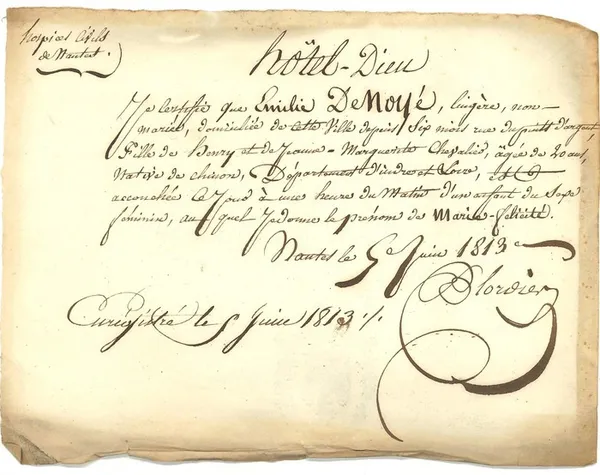 hospices Civils
de Nantes.
hôtel-Dieu
Je Certifie que Emilie DeNoyé, lingère, non-
mariée, domiciliée de cette Ville depuis Six mois rue du puits d'argent,
Fille de henry et de Jeanne-Marguerite Chevalier, âgée de 20 ans,
Native de chinon, Département d'indre et Loire, est
accouchée ce Jour à une heure du Matin d'un enfant du Sexe
féminin, au quel Je donne le prénom de Marie-félicité.
Nantes le 5e Juin 1813
Enregistré le 5 Juin 1813 ./.